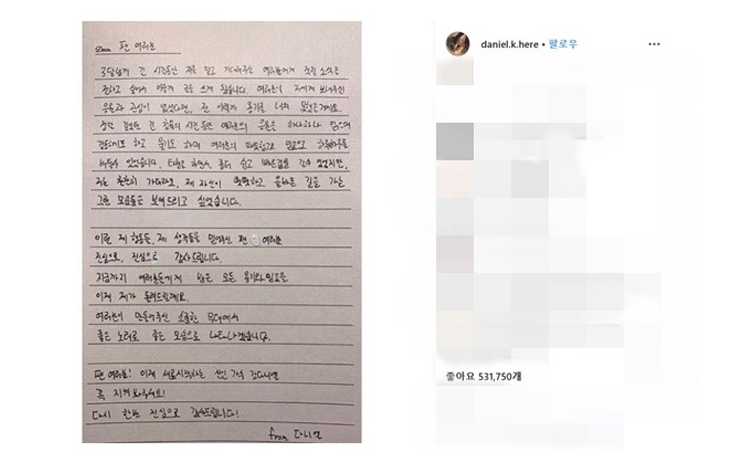 Dear 팬 여러분
3달넘게 긴 시간동안 저를 믿고 기다려주신 여러분에게 직접 소식을
전하고 싶어서 이렇게 글을 쓰게 됐습니다. 여러분이 저에게 보여주신
응원과 관심이 없었다면, 전 이렇게 용기를 내지 못했을거예요.
길면 길었던 긴 침묵의 시간동안 여러분의 응원은 하나하나 읽으며
감동하기도 하고 울기도 하며 여러분의 따뜻함과 믿음으로 하루하루를
버틸수 있었습니다.
저는 천천히 가더라도, 제 자신이 떳떳하고 올바른 길을 가는
그런 모습들을 보여드리고 싶었습니다.
이런 제 행동들, 제 생각들을 믿어주신 팬 여러분
진심으로, 진심으로 감사드립니다.
지금까지 여러분들에게 받은 모든 용기와 믿음을
이제 제가 돌려드릴게요.
여러분이 만들어주신 소중한 무대에서
좋은 노래로 좋은 모습으로 나타나겠습니다.
팬 여러분! 이제 새로 시작하는 신인 가수 강다니엘
꼭 지켜봐주세요!
다시 한번 진심으로 감사드립니다!
from 다니엘
daniel.k.here • 팔로우
좋아요 531,750개